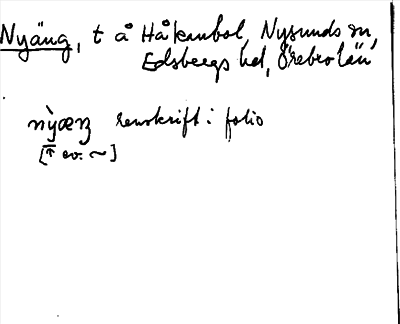 Nyäng, t å Håkanbol, Nysunds sn,
Edsbergs hd, Örebro län
nỳæŋ renskrift i folio
[↑ ev. ~]